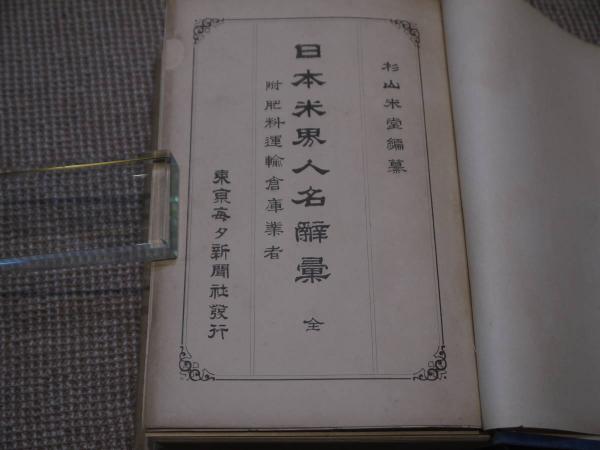 杉山米堂編纂
日本米界人名辭彙 全
附肥料運輸倉庫業者
東京每夕新聞社發行